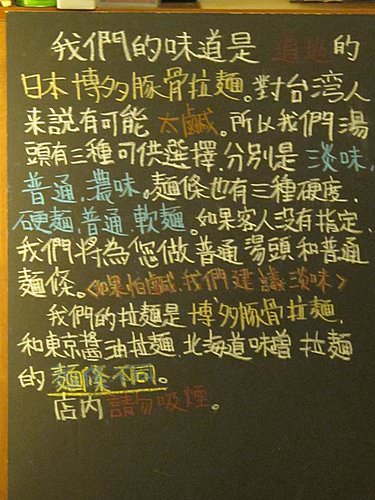 我們的味道是道地的
日本博多豚骨拉麵。對台湾人
来説有可能太鹹。所以我們湯
頭有三種可供選擇，分別是淡味，
普通，濃味。麵條也有三種硬度，
硬麵，普通，軟麵。如果客人沒有指定，
我們將為您做普通湯頭和普通
麵條。<如果怕鹹，我們建議淡味>
我們的拉麵是博多豚骨拉麵，
和東京醬油拉麵，北海道味增拉麵
的麵條不同。
店内請勿吸煙。